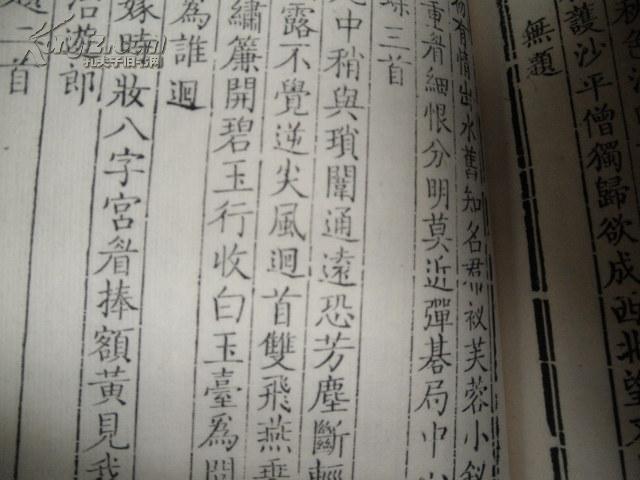 護沙平僧獨歸欲成西北望
無題
有情出水舊知名帬衩芙蓉小釵
重眉細恨分明莫近彈碁局中
三首
中稍與瑣闈通遠恐芳塵斷輕
露不覺逆尖風迴首雙飛燕乘
繡簾開碧玉行收白玉臺為問
為誰迴
嫁時妝八字宮眉捧額黃見我
冶遊郎
題二首
孔夫子旧书网